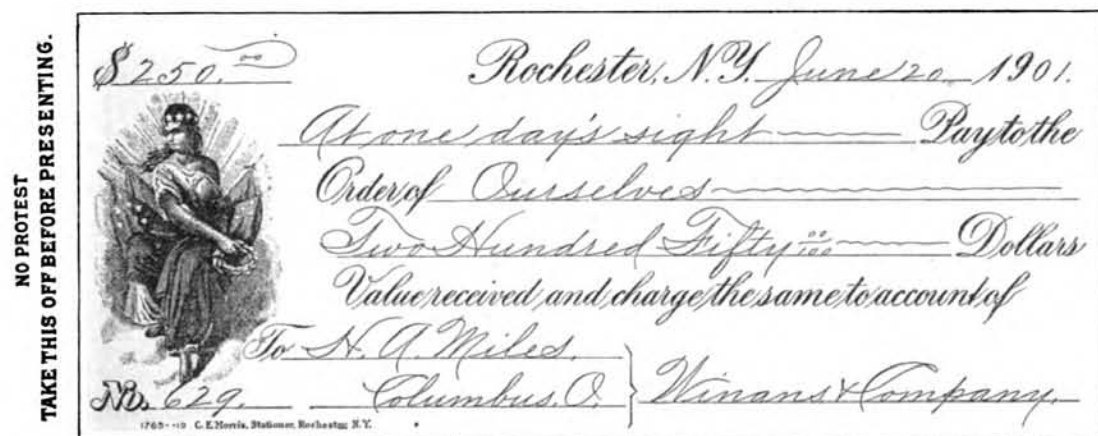 NO PROTEST
TAKE THIS OFF BEFORE PRESENTING.
$250.00 Rochester, N.Y. June 20 1901.
At one day's sight Pay to the
Order of Ourselves
Two Hundred Fifty 00/100 Dollars
Value received and charge the same to account of
To H. A. Miles,
No. 629. Columbus, O. } Winans & Company.
1765--19 C. E. Morris, Stationer, Rochester, N.Y.